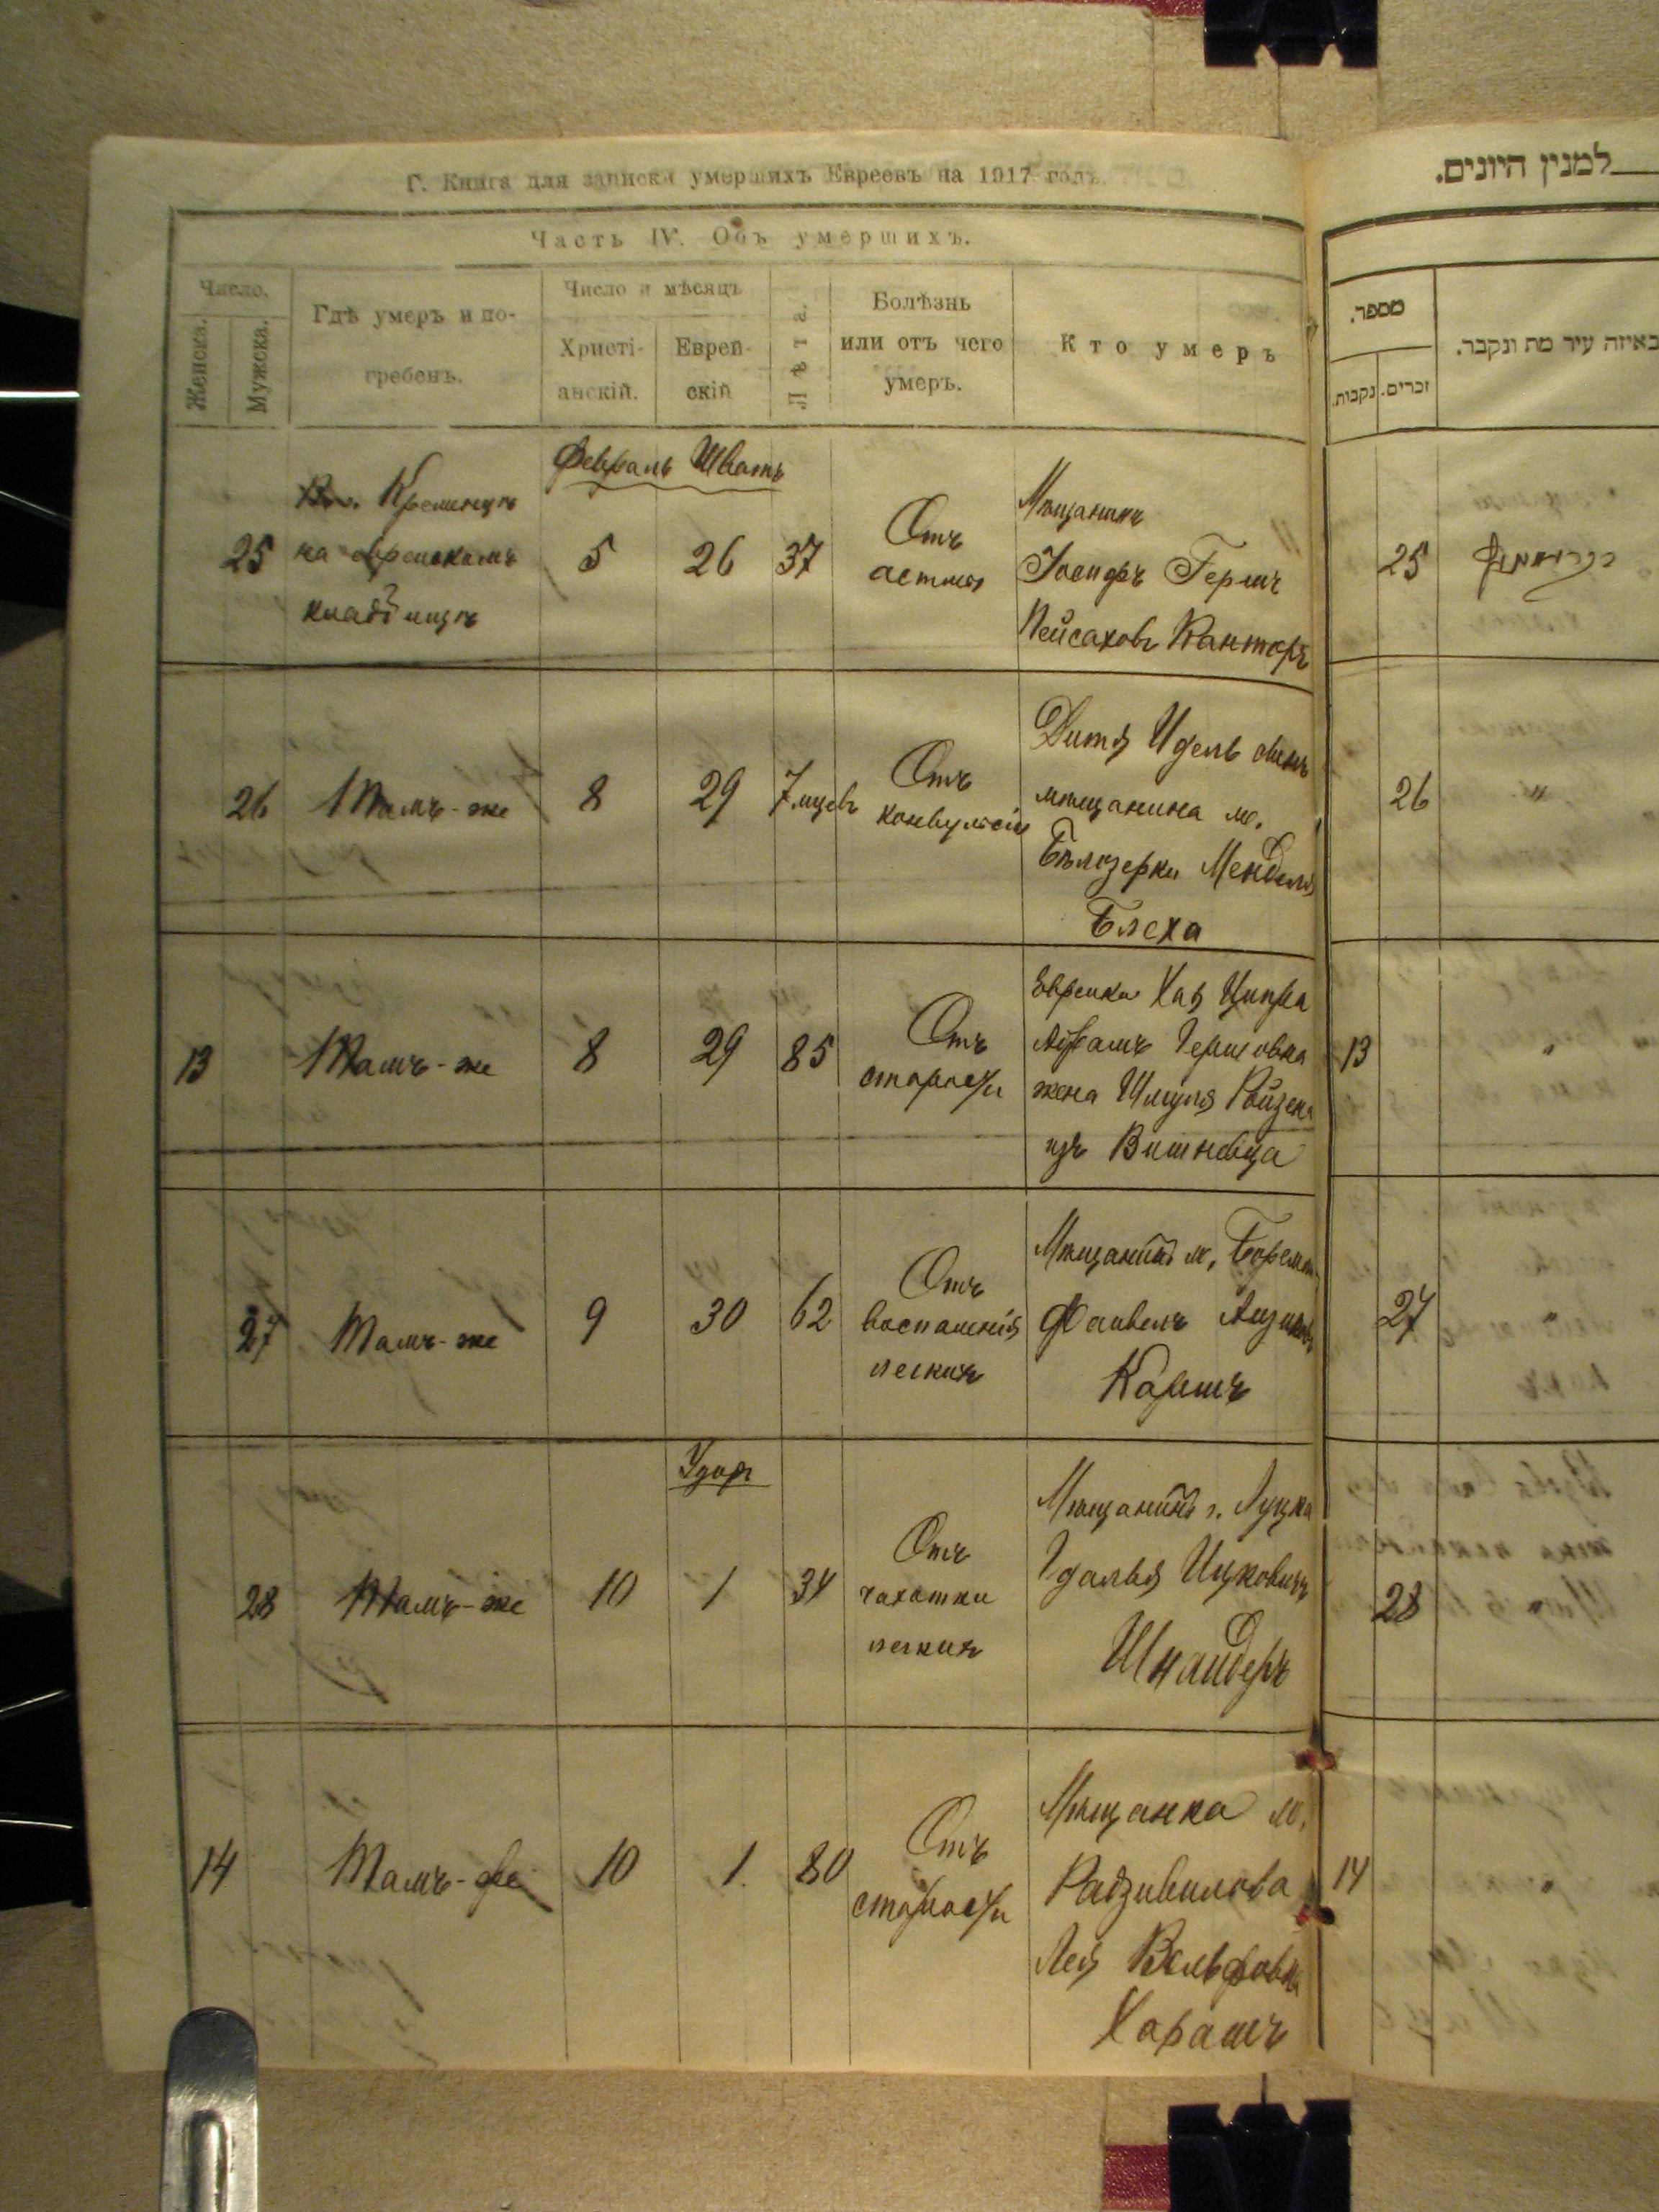 Г. Книга для записки умершихъ Евреевъ на 1917 годъ.
Часть IV. Объ умершихъ.
Число.
Женска.
Мужска.
Гдѣ умеръ и по-
гребенъ.
Число и мѣсяцъ
Христі-
анскій.
Еврей-
скій
Лѣта.
Болѣзнь
или отъ чего
умеръ.
Кто умеръ
Февраль Шватъ
25
Кременцѣ
на еврейскомъ
кладбищѣ
5
26
37
Отъ
астмы
Мѣщанинъ
Іосифъ Гершъ
Пейсаховъ Канторъ
26
Тамъ-же
8
29
7 мцевъ
Отъ
конвульсіи
Дитя Идель сынъ
мѣщанина м.
Бѣлозерки Менделя
Блеха
13
Тамъ-же
8
29
85
Отъ
старости
Еврейка Хая Ципра
Абрамъ Гершовна
жена Шмуля Ройзена
изъ Вишневца
27
Тамъ-же
9
30
62
Отъ
воспаленія
легкихъ
Мѣщанинъ м.
Файвель
Каршъ
Удоръ
28
Тамъ-же
10
1
34
Отъ
чахотки
легкихъ
Мѣщанинъ г. Луцка
Гдалья Ицковичъ
Шнайдеръ
14
Тамъ-же
10
1.
80
Отъ
старости
Мѣщанка м.
Радзивилова
Лея Вольфовна
Харашъ
למנין היונים.
מספר.
נקבות.
זכרים.
באיזה עיר מת ונקבר.
25
קרעמניץ
26
"
13
"
27
"
28
"
14
"